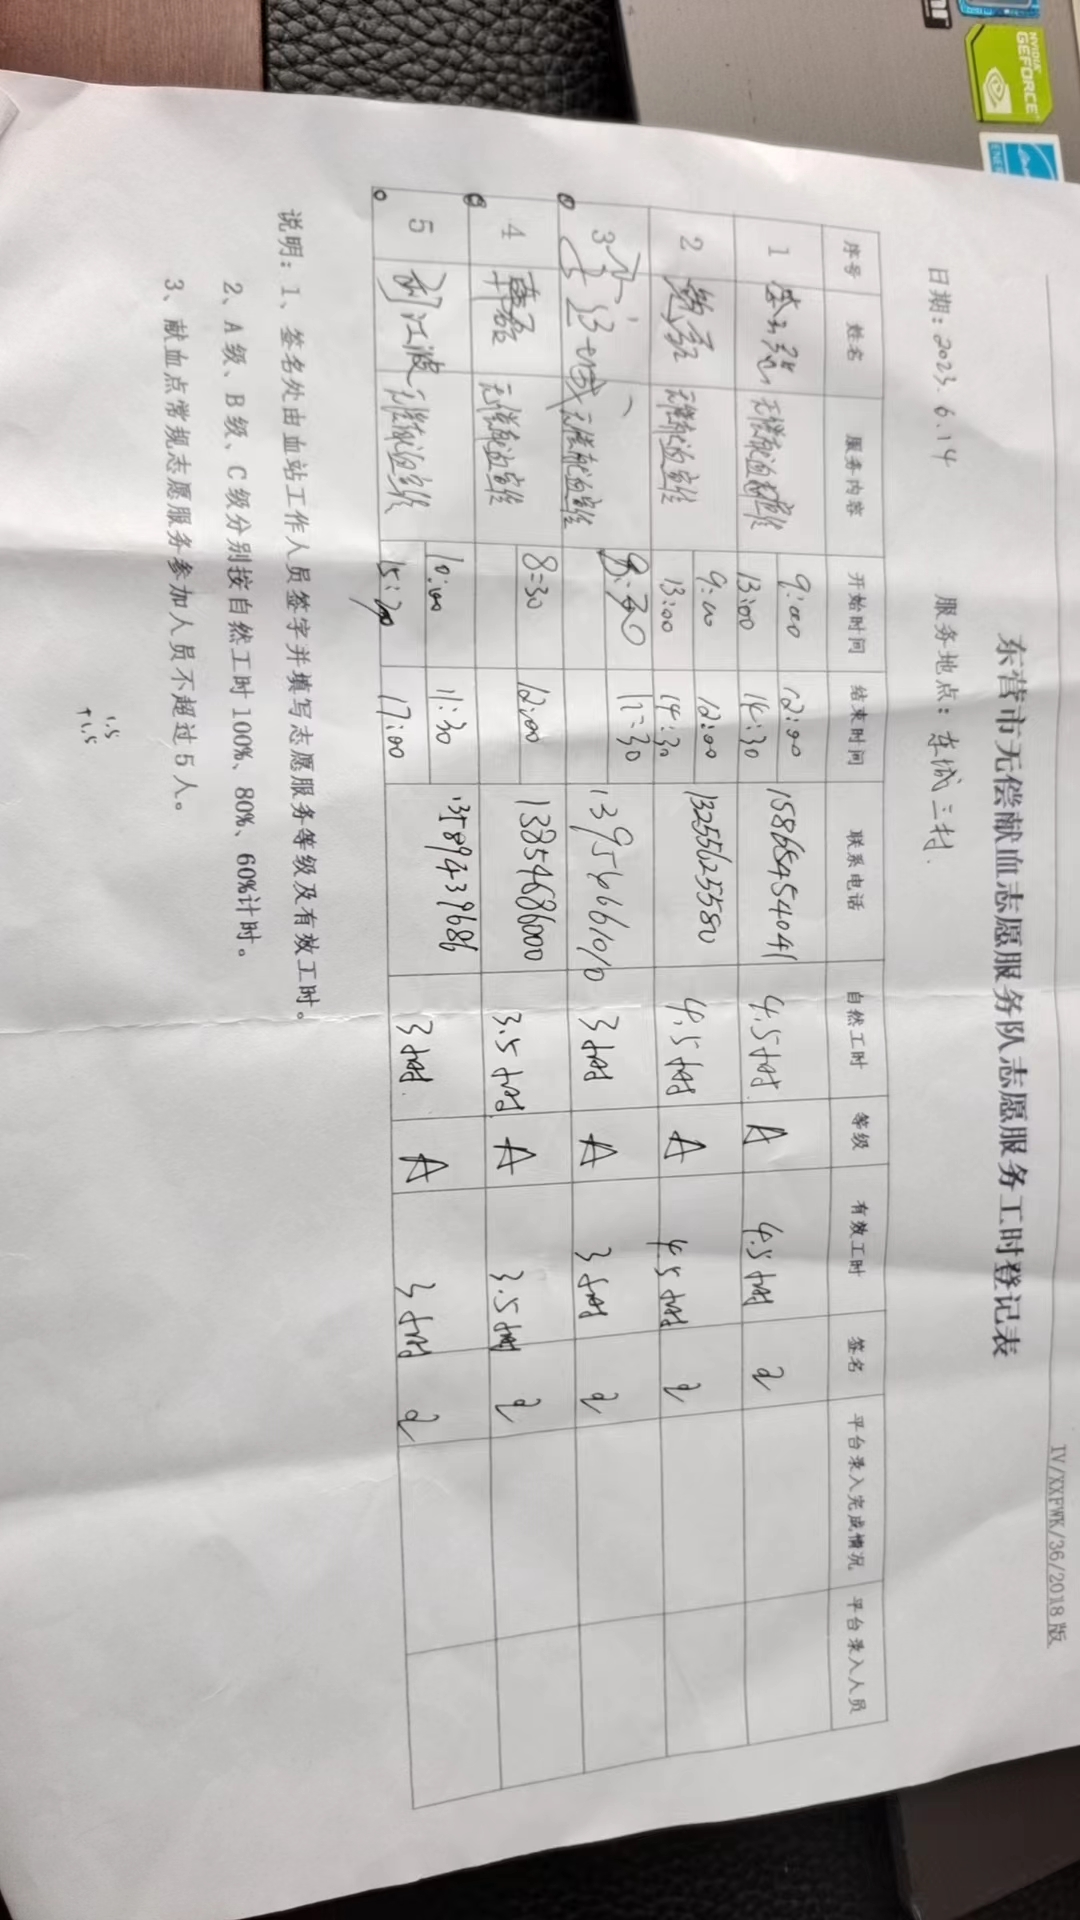 IV/XXFWK/36/2018版
东营市无偿献血志愿服务队志愿服务工时登记表
日期：2023.6.14 服务地点：东城三村.
序号 姓名 服务内容 开始时间 结束时间 联系电话 自然工时 等级 有效工时 签名 平台录入完成情况 平台录入人员
1 无偿献血宣传 9:00 12:00 15865454041 4.5小时 A 4.5小时
13:00 14:30
2 无偿献血宣传 9:00 12:00 13255625580 4.5小时 A 4.5小时
13:00 14:30
3 无偿献血宣传 8:30 11:30 13956661010 3小时 A 3小时
4 无偿献血宣传 8:30 12:00 13854686000 3.5小时 A 3.5小时
5 无偿献血宣传 10:00 11:30 13589439686 3小时 A 3小时
15:30 17:00
说明：1、签名处由血站工作人员签字并填写志愿服务等级及有效工时。
2、A级、B级、C级分别按自然工时100%、80%、60%计时。
3、献血点常规志愿服务参加人员不超过5人。
1.5
+1.5
NVIDIA
GEFORCE